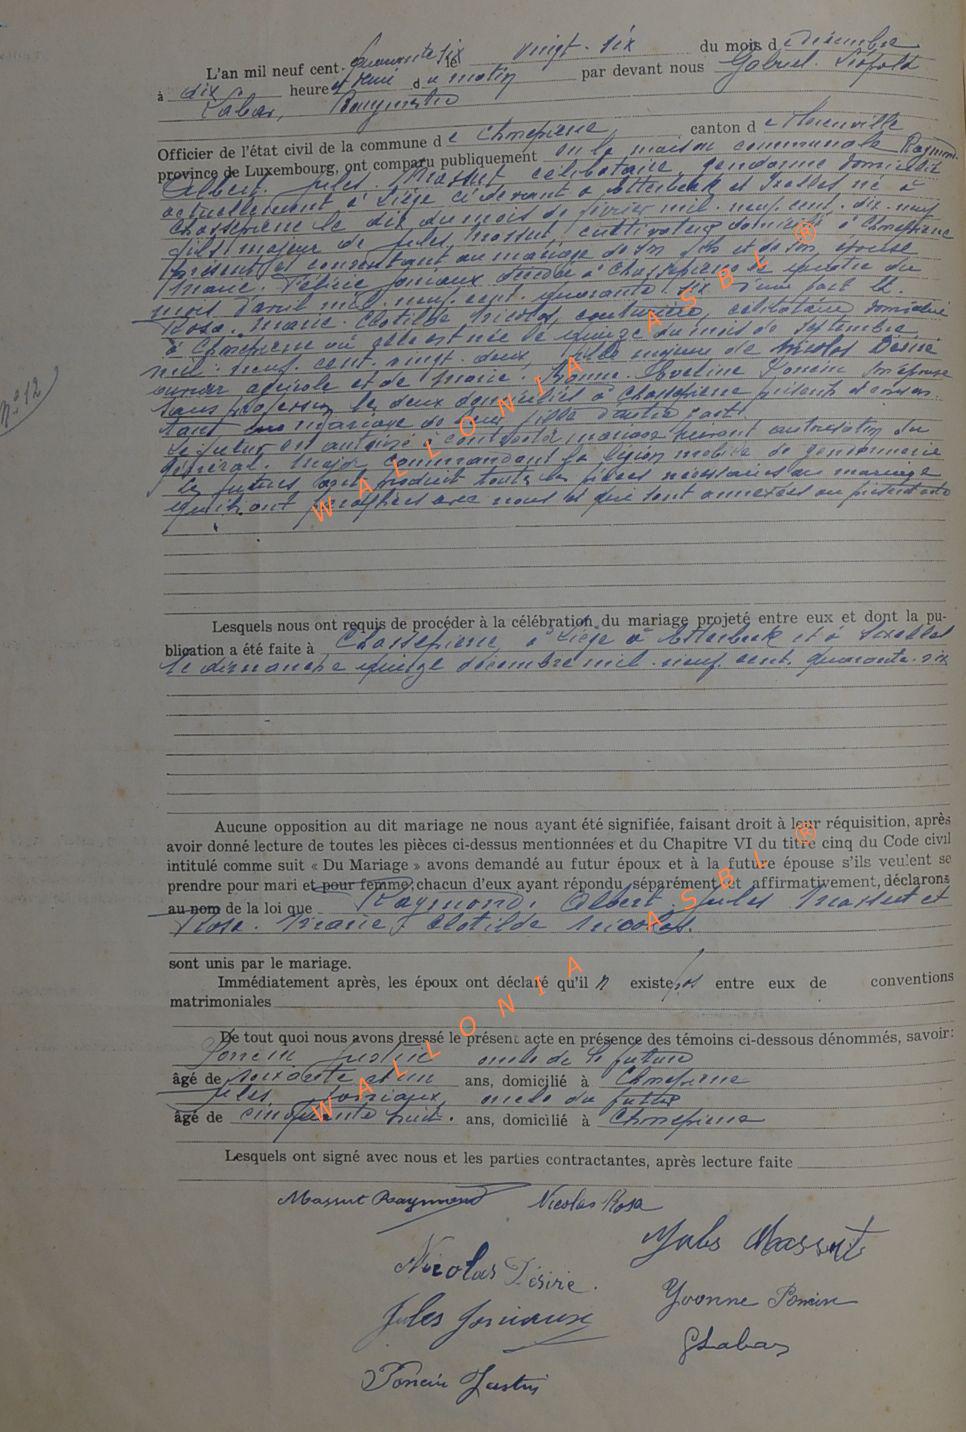 L'an mil neuf cent. Quarante six le vingt. six du mois de décembre
à dix heures et demi du matin par devant nous Gabriel. Léopold
Labar, Bourgmestre
Officier de l'état civil de la commune de Chassepierre canton de Florenville
province de Luxembourg, ont comparu publiquement en la maison communale Raymond.
Albert. Jules. Massut célibataire, gendarme domicilié
actuellement à Liège ci devant à Etterbeek et Ixelles né à
Chassepierre le dix du mois de février mil. neuf. cent. dix-neuf
fils majeur de Jules, Massut, cultivateur domicilié à Chassepierre
présent et consentant au mariage de son fils et de son épouse
Marie. Félicie Joniaux décédée à Chassepierre le quatre du
mois d'avril mil. neuf. cent. quarante. six d'une part et.
Rosa. Marie. Clotilde Nicolas, couturière, célibataire domiciliée
à Chassepierre où elle est née le quinze du mois de septembre
mil. neuf. cent. vingt. deux, fille majeure de Nicolas Désiré
ouvrier agricole et de Marie. Yvonne. Eveline Poncin son épouse
sans profession les deux domiciliés à Chassepierre présents et consen-
tant au mariage de leur fille d'autre part.
Le futur est autorisé à contracter mariage suivant autorisation du
général. Major commandant la légion mobile de gendarmerie
les futurs ont produit toutes les pièces nécessaires au mariage
qu'ils ont paraphées avec nous et qui sont annexées au présent acte
N° 12
Lesquels nous ont requis de procéder à la célébration du mariage projeté entre eux et dont la pu-
blication a été faite à Chassepierre, à Liège à Etterbeek et à Ixelles
le dimanche quinze décembre mil. neuf. cent. quarante. six
Aucune opposition au dit mariage ne nous ayant été signifiée, faisant droit à leur réquisition, après
avoir donné lecture de toutes les pièces ci-dessus mentionnées et du Chapitre VI du titre cinq du Code civil
intitulé comme suit « Du Mariage » avons demandé au futur époux et à la future épouse s'ils veulent se
prendre pour mari et pour femme; chacun d'eux ayant répondu séparément et affirmativement, déclarons
au nom de la loi que Raymond. Albert. Jules Massut et
Rosa. Marie. Clotilde Nicolas.
sont unis par le mariage.
Immédiatement après, les époux ont déclaré qu'il n existe pas entre eux de conventions
matrimoniales
De tout quoi nous avons dressé le présent acte en présence des témoins ci-dessous dénommés, savoir:
Poncin Justin oncle de la future
âgé de soixante et un ans, domicilié à Chassepierre
Jules Joniaux, oncle du futur
âgé de cinquante huit. ans, domicilié à Chassepierre
Lesquels ont signé avec nous et les parties contractantes, après lecture faite
Massut Raymond Nicolas Rosa
Jules Massut
Nicolas Désiré.
Yvonne Poncin
Jules Joniaux
GLabar
Poncin Justin
WALLONIA ASBL ®
WALLONIA ASBL ®